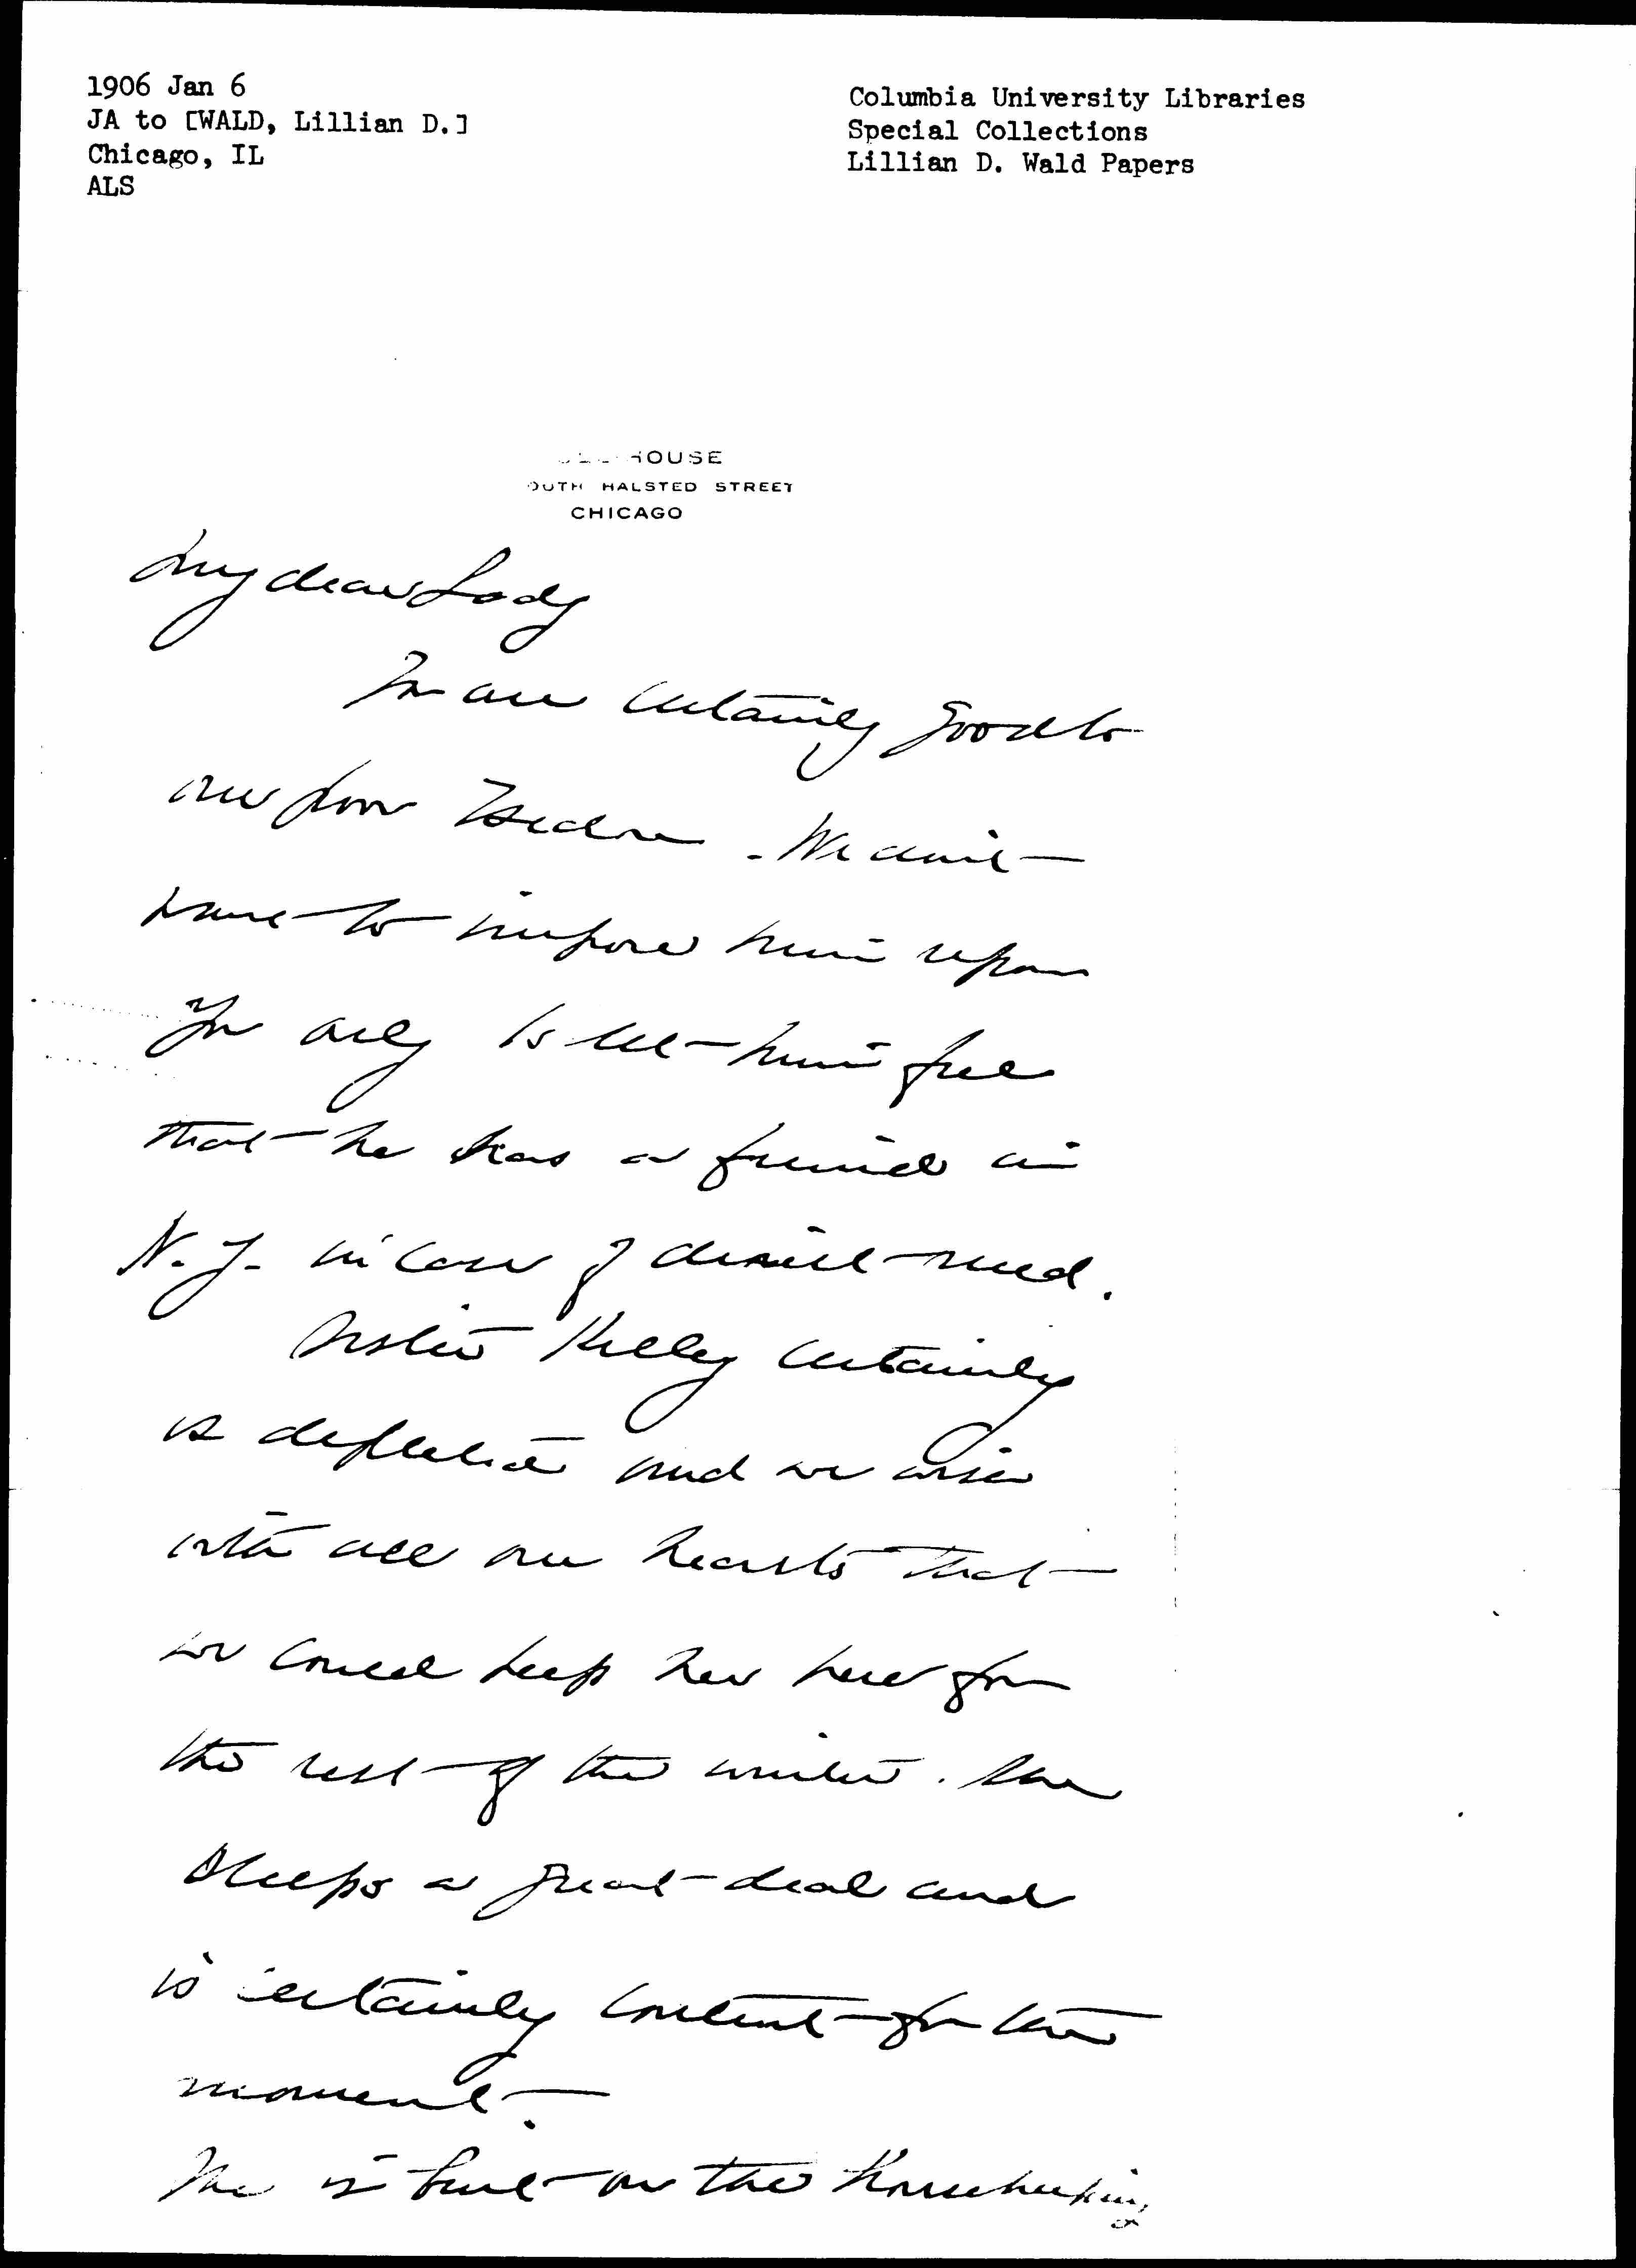 1906 Jan 6
JA to [WALD, Lillian D.]
Chicago, IL
ALS
Columbia University Libraries
Special Collections
Lillian D. Wald Papers
HOUSE
OUTH HALSTED STREET
CHICAGO
My dear Lady
You are certainly good to
our poor Isadore. We don't
want to impose him upon
you only to let him feel
that he has a friend in
N.Y. in case of direst need.
Sister Kelley certainly
is depleted and we wish
with all our hearts that
we could keep her here for
the rest of the winter. She
sleeps a great deal and
is certainly content for the
moment.
She is bent on the Housekeeping